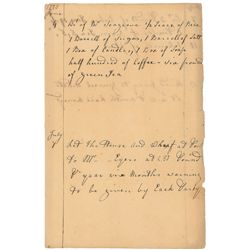 June
of Mr Seagrove 1/2 Tierce of Rice
1 Barrell of Sugar, 1 Barrell of Salt
1 Box of Candles, 1 Box of Soap
half hundred of Coffee - six pounds
of Green Tea
July
Let The House and
To Mr. Eyers at £50 Pound
Pr year six Months warning
to be given by Each Party